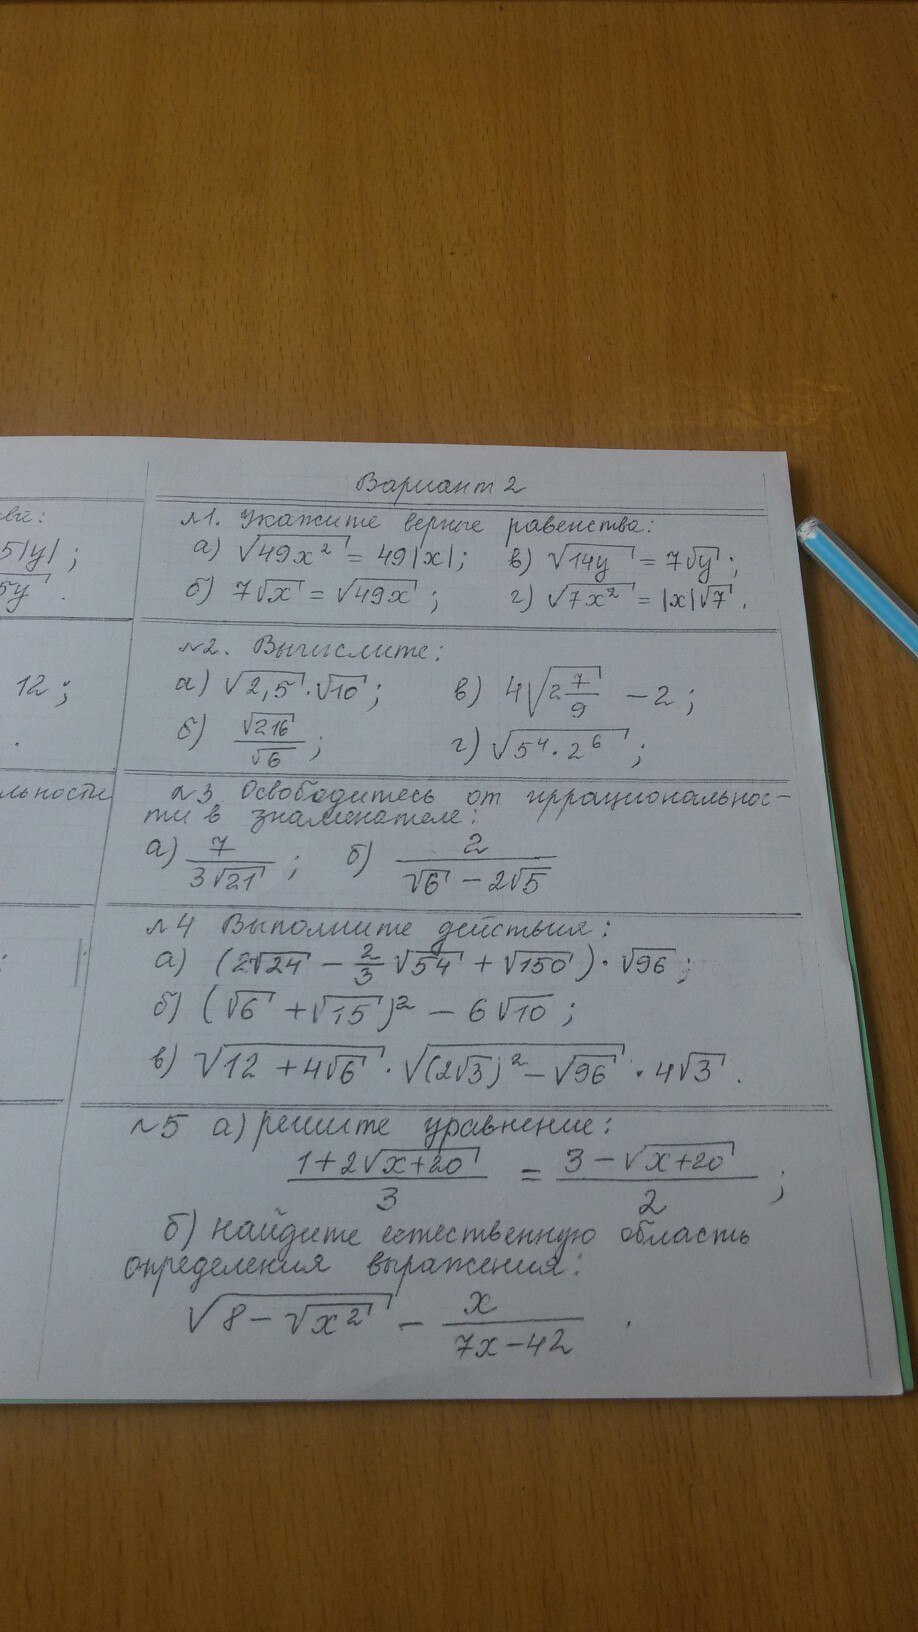 Вариант 2
№1. Укажите верные равенства:
а) √49x² = 49|x|; в) √14y = 7√y;
б) 7√x = √49x; г) √7x² = |x|√7.
№2. Вычислите:
а) √2,5 · √10; в) 4√2 7/9 − 2;
б) √216/√6; г) √5⁴ · 2⁶;
№3 Освободитесь от иррациональнос-
ти в знаменателе:
а) 7/3√21; б) 2/√6 − 2√5
№4 Выполните действия:
а) (2√24 − 2/3 √54 + √150) · √96;
б) (√6 + √15)² − 6√10;
в) √12 + 4√6 · √(2√3)² − √96 · 4√3.
№5 а) решите уравнение:
1 + 2√x+20 / 3 = 3 − √x+20 / 2;
б) найдите естественную область
определения выражения:
√8 − √x² − x/7x−42.
5|y|;
5y.
12;
льности